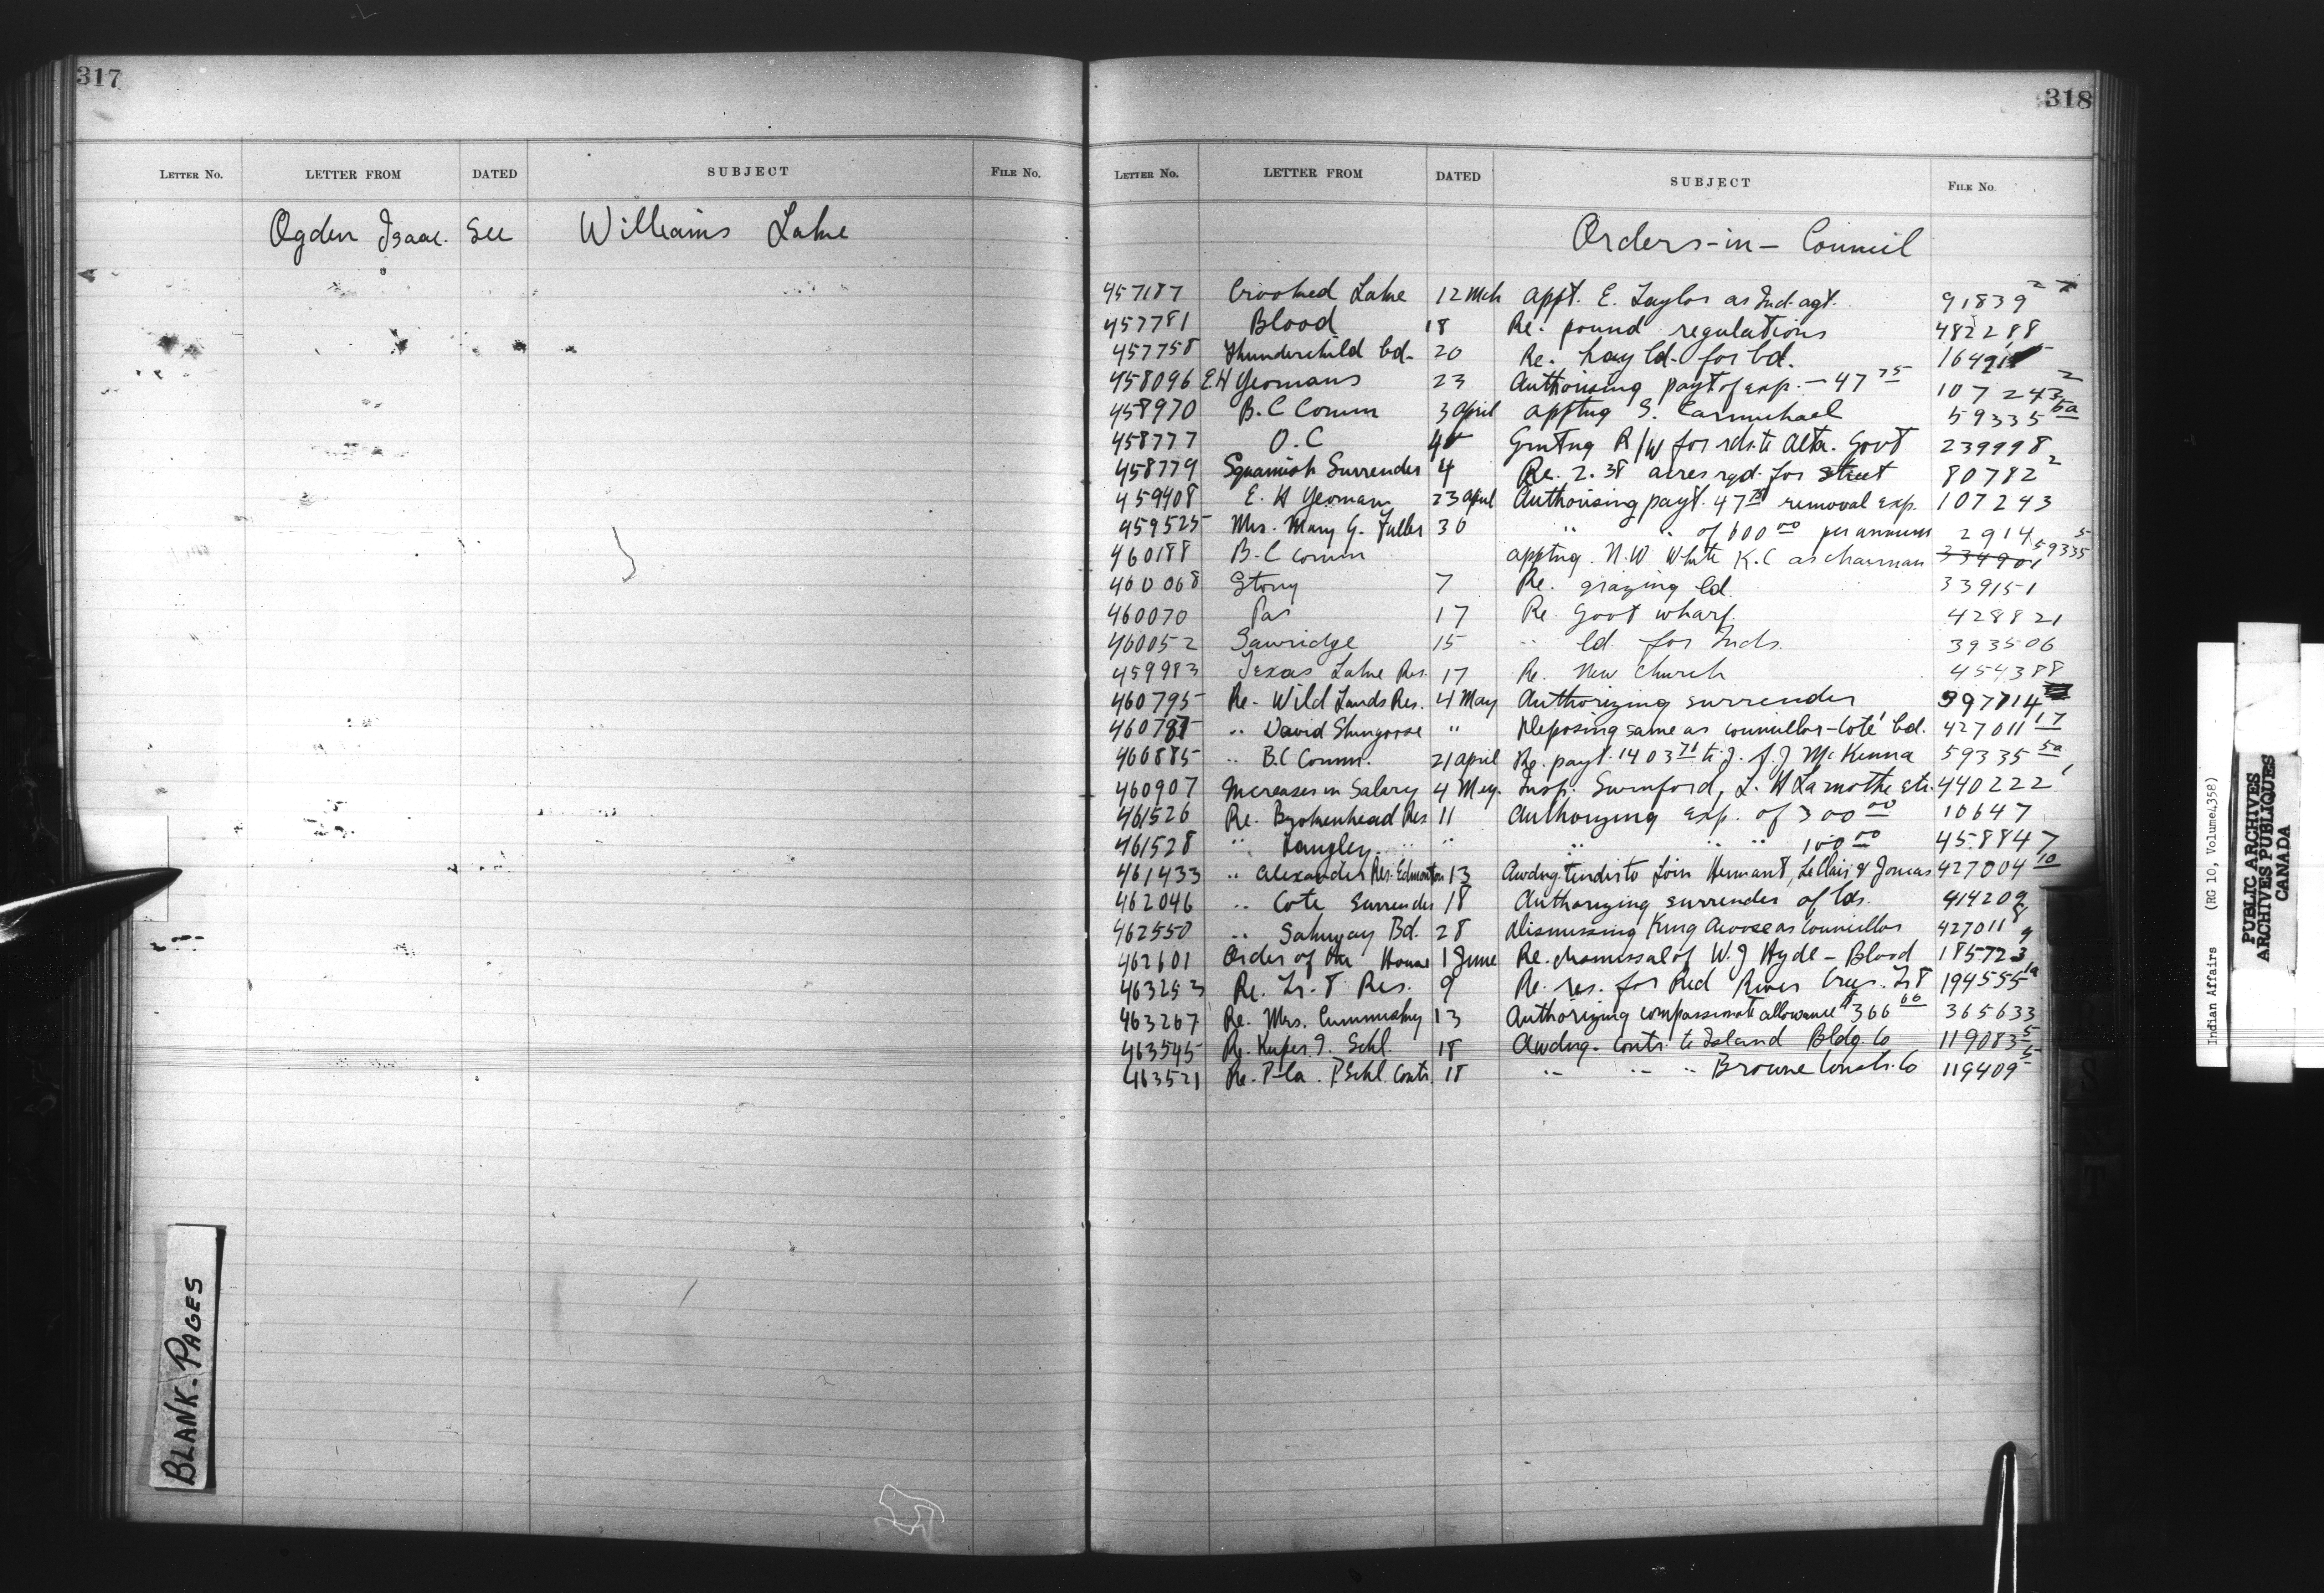 317
LETTER NO. LETTER FROM DATED SUBJECT FILE NO.
Ogden Isaac. See Williams Lake
BLANK-PAGES
318
LETTER NO. LETTER FROM DATED SUBJECT FILE NO.
Orders-in-Council
457187 Crooked Lake 12 Mch appt. E. Taylor as Ind. agt. 91839
457781 Blood 18 Re. pound regulations 482288
457758 Thunderchild bd. 20 Re. hay ld. for bd.
458096 E.H Yeomans 23 Authorising payt of exp. - 47 75 107243 2
458970 B.C Comm 3 April apptng S. Carmichael 59335 5a
458777 O.C Grntng R/W for rds. to Alta. Govt 239998
458779 Squamish Surrender 4 Re. 2.38 acres rqd. for street 80782 2
459408 E. H Yeomans 23 April Authorising payt. 47 75 removal exp. 107243
459525 Mrs. Mary G. Fuller 30 " " of 600 00 per annum 2914
460188 B.C Comm apptng. N.W White K.C as chairman 334901 59335 5
460068 Stony 7 Re. grazing ld. 339151
460070 Pas 17 Re. Govt wharf 428821
460052 Sawridge 15 " ld. for Inds. 393506
459983 Texas Lake Res. 17 Re. New Church 454388
460795 Re- Wild Lands Res. 4 May Authorizing surrender 397714
" David Shingoose " Deposing same as councillor-Coté bd. 427011 17
460885 " B.C Comm. 21 April Re. payt. 1403 71 to J. A. J McKenna 59335 5a
460907 Increases in Salary 4 May. Insp. Swinford, L. H Lamothe etc. 440222 1
461526 Re. Brokenhead Res 11 Authorizing exp. of 300 00 10647
461528 " Langley " " " " " 100 00 458847
461433 " Alexander Res. Edmonton 13 Awdng. tenders to Loin Hermant, LeClair & Joncas 427004 10
462046 " Cote Surrender 18 Authorizing surrender of lds. 414209
462550 " Sakimay Bd. 28 Dismissing King Acoose as Councillor 427011 8
462601 Order of the House 1 June Re. dismissal of W. J Hyde - Blood 185723 9
463253 Re. Tr. 8 Res. 9 Re. res. for Red River Crees. Tr 8 194555 1a
463267 Re. Mrs. Cummiskey 13 Authorizing compassionate allowance $366 66 365633
463545 Re. Kuper I. Schl. 18 Awdng. Contr. to Island Bldg. Co 119083 5
463521 Re. P-la. P Schl. Contr. 18 " " " Browne Constr. Co 119409 5
Indian Affairs (RG 10, Volume 4358)
PUBLIC ARCHIVES
ARCHIVES PUBLIQUES
CANADA